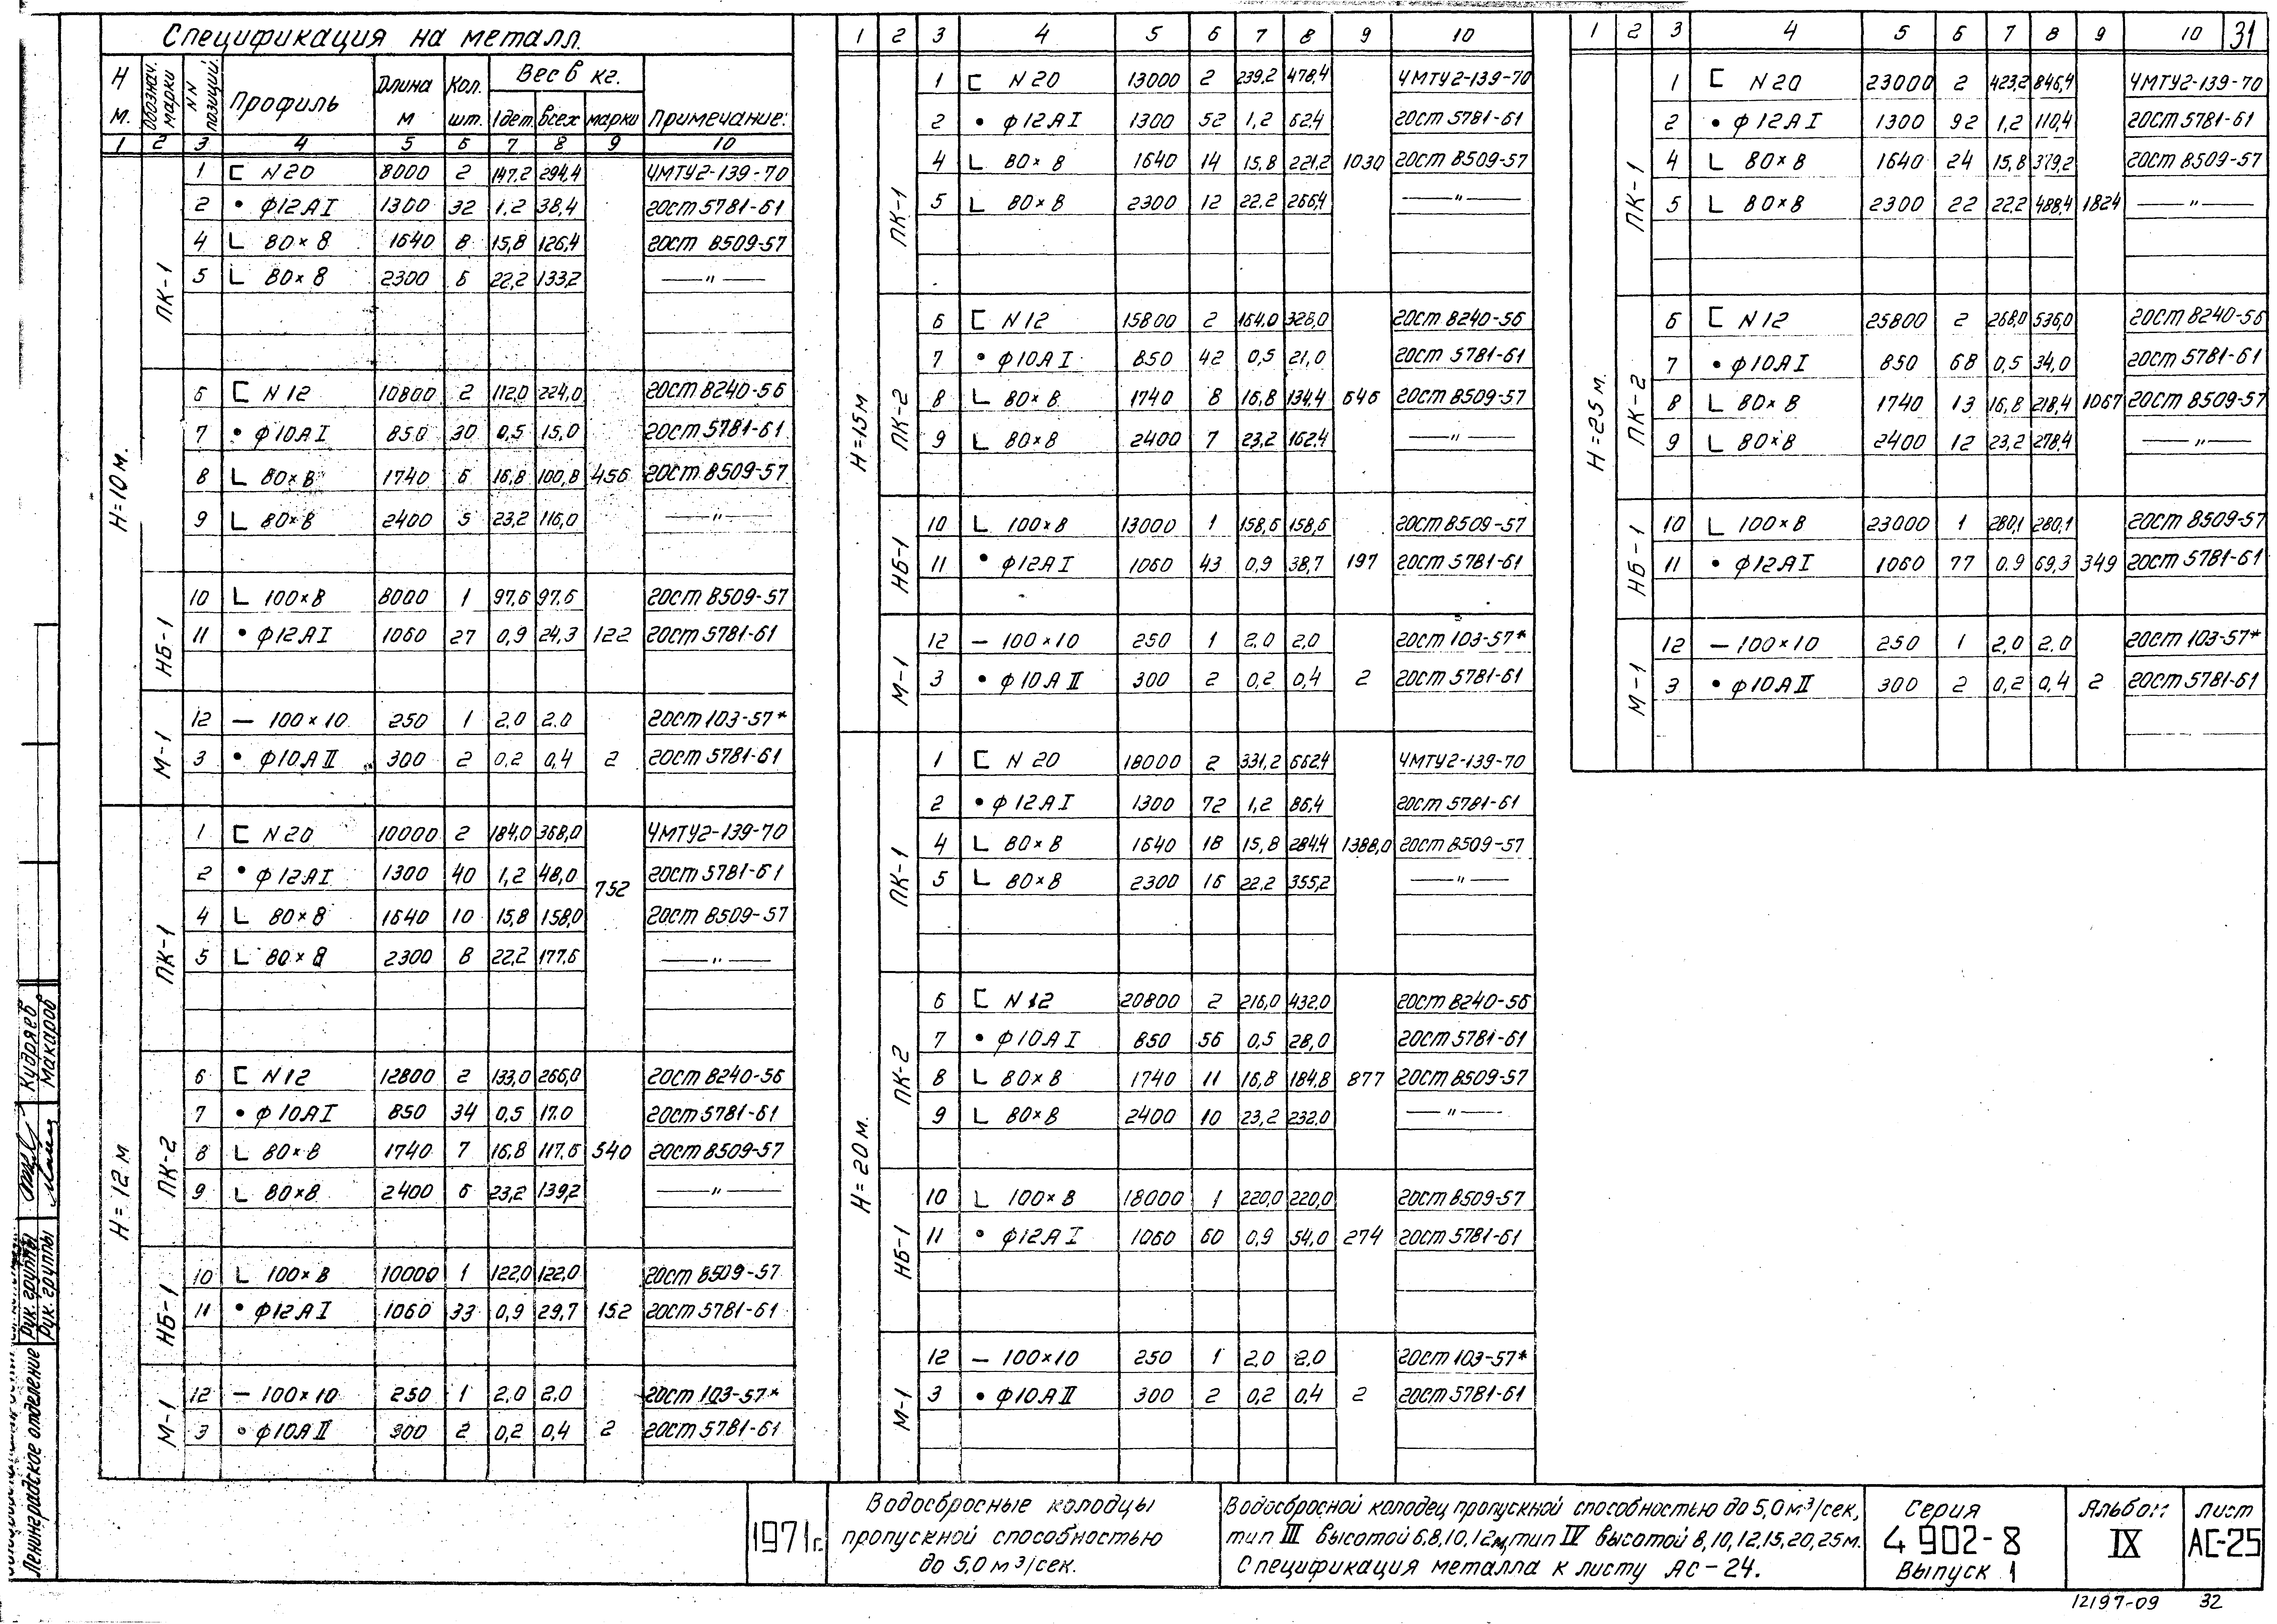 Спецификация на металл.
Н м. | Обознач. марки | NN позиций | Профиль | Длина м | Кол. шт. | Вес в кг. 1 дет. | всех | марки | Примечание:
1 2 3 4 5 6 7 8 9 10
Н=10м.
ПК-1
1 [ N20 8000 2 147,2 294,4 ЧМТУ2-139-70
2 • ф12АI 1300 32 1,2 38,4 гост 5781-61
4 L 80×8 1640 8 15,8 126,4 гост 8509-57
5 L 80×8 2300 6 22,2 133,2 —"—
ПК-2
6 [ N12 10800 2 112,0 224,0 гост 8240-56
7 • ф10АI 850 30 0,5 15,0 гост 5781-61
8 L 80×8 1740 6 16,8 100,8 456 гост 8509-57
9 L 80×8 2400 5 23,2 116,0 —"—
НБ-1
10 L 100×8 8000 1 97,6 97,6 гост 8509-57
11 • ф12АI 1060 27 0,9 24,3 122 гост 5781-61
М-1
12 — 100×10 250 1 2,0 2,0 гост 103-57*
3 • ф10АII 300 2 0,2 0,4 2 гост 5781-61
Н=12м
ПК-1
1 [ N20 10000 2 184,0 368,0 ЧМТУ2-139-70
2 • ф12АI 1300 40 1,2 48,0 752 гост 5781-61
4 L 80×8 1640 10 15,8 158,0 гост 8509-57
5 L 80×8 2300 8 22,2 177,6 —"—
ПК-2
6 [ N12 12800 2 133,0 266,0 гост 8240-56
7 • ф10АI 850 34 0,5 17,0 гост 5781-61
8 L 80×8 1740 7 16,8 117,6 540 гост 8509-57
9 L 80×8 2400 6 23,2 139,2 —"—
НБ-1
10 L 100×8 10000 1 122,0 122,0 гост 8509-57
11 • ф12АI 1060 33 0,9 29,7 152 гост 5781-61
М-1
12 — 100×10 250 1 2,0 2,0 гост 103-57*
3 • ф10АII 300 2 0,2 0,4 2 гост 5781-61
1 2 3 4 5 6 7 8 9 10
Н=15м
ПК-1
1 [ N20 13000 2 239,2 478,4 ЧМТУ2-139-70
2 • ф12АI 1300 52 1,2 62,4 гост 5781-61
4 L 80×8 1640 14 15,8 221,2 1030 гост 8509-57
5 L 80×8 2300 12 22,2 266,4 —"—
ПК-2
6 [ N12 15800 2 164,0 328,0 гост 8240-56
7 • ф10АI 850 42 0,5 21,0 гост 5781-61
8 L 80×8 1740 8 16,8 134,4 646 гост 8509-57
9 L 80×8 2400 7 23,2 162,4 —"—
НБ-1
10 L 100×8 13000 1 158,6 158,6 гост 8509-57
11 • ф12АI 1060 43 0,9 38,7 197 гост 5781-61
М-1
12 — 100×10 250 1 2,0 2,0 гост 103-57*
3 • ф10АII 300 2 0,2 0,4 2 гост 5781-61
Н=20м.
ПК-1
1 [ N20 18000 2 331,2 662,4 ЧМТУ2-139-70
2 • ф12АI 1300 72 1,2 86,4 гост 5781-61
4 L 80×8 1640 18 15,8 284,4 1388,0 гост 8509-57
5 L 80×8 2300 16 22,2 355,2 —"—
ПК-2
6 [ N12 20800 2 216,0 432,0 гост 8240-56
7 • ф10АI 850 56 0,5 28,0 гост 5781-61
8 L 80×8 1740 11 16,8 184,8 877 гост 8509-57
9 L 80×8 2400 10 23,2 232,0 —"—
НБ-1
10 L 100×8 18000 1 220,0 220,0 гост 8509-57
11 • ф12АI 1060 60 0,9 54,0 274 гост 5781-61
М-1
12 — 100×10 250 1 2,0 2,0 гост 103-57*
3 • ф10АII 300 2 0,2 0,4 2 гост 5781-61
1 2 3 4 5 6 7 8 9 10 31
Н=25м.
ПК-1
1 [ N20 23000 2 423,2 846,4 ЧМТУ2-139-70
2 • ф12АI 1300 92 1,2 110,4 гост 5781-61
4 L 80×8 1640 24 15,8 379,2 гост 8509-57
5 L 80×8 2300 22 22,2 488,4 1824 —"—
ПК-2
6 [ N12 25800 2 268,0 536,0 гост 8240-56
7 • ф10АI 850 68 0,5 34,0 гост 5781-61
8 L 80×8 1740 13 16,8 218,4 1067 гост 8509-57
9 L 80×8 2400 12 23,2 278,4 —"—
НБ-1
10 L 100×8 23000 1 280,1 280,1 гост 8509-57
11 • ф12АI 1060 77 0.9 69,3 349 гост 5781-61
М-1
12 — 100×10 250 1 2,0 2,0 гост 103-57*
3 • ф10АII 300 2 0,2 0,4 2 гост 5781-61
Ленинградское отделение
Рук. группы Кудряев
Рук. группы Макаров
1971г.
Водосбросные колодцы
пропускной способностью
до 5,0 м³/сек.
Водосбросной колодец пропускной способностью до 5,0 м³/сек,
тип III высотой 6,8,10,12м, тип IV высотой 8,10,12,15,20,25м.
Спецификация металла к листу АС-24.
Серия
4 902-8
Выпуск 1
Альбом
IX
лист
АС-25
12197-09 32